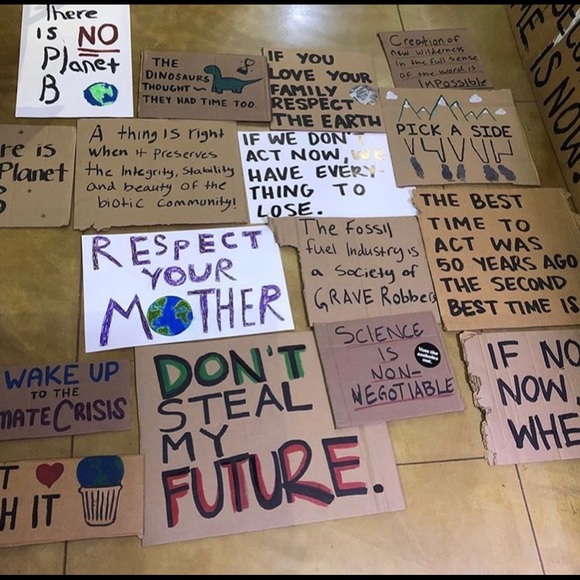 There
is NO
Planet
B
THE
DINOSAURS
THOUGHT
THEY HAD TIME TOO.
IF YOU
LOVE YOUR
FAMILY
RESPECT
THE EARTH
Creation of
new wilderness
in the full sense
of the word is
ImPossible
PICK A SIDE
re is
Planet
B
A thing is right
when it preserves
the Integrity, Stability
and beauty of the
biotic Community!
IF WE DON'T
ACT NOW, WE
HAVE EVERY-
THING TO
LOSE.
THE BEST
TIME TO
ACT WAS
50 YEARS AGO
THE SECOND
BEST TIME IS
E IS NOW.
RESPECT
YOUR
MOTHER
The Fossil
fuel Industry is
a Society of
GRAVE Robbers
SCIENCE
IS
NON-
NEGOTIABLE
IF NO
NOW
WHE
WAKE UP
TO THE
MATE CRISIS
DON'T
STEAL
MY
FUTURE.
T
H IT